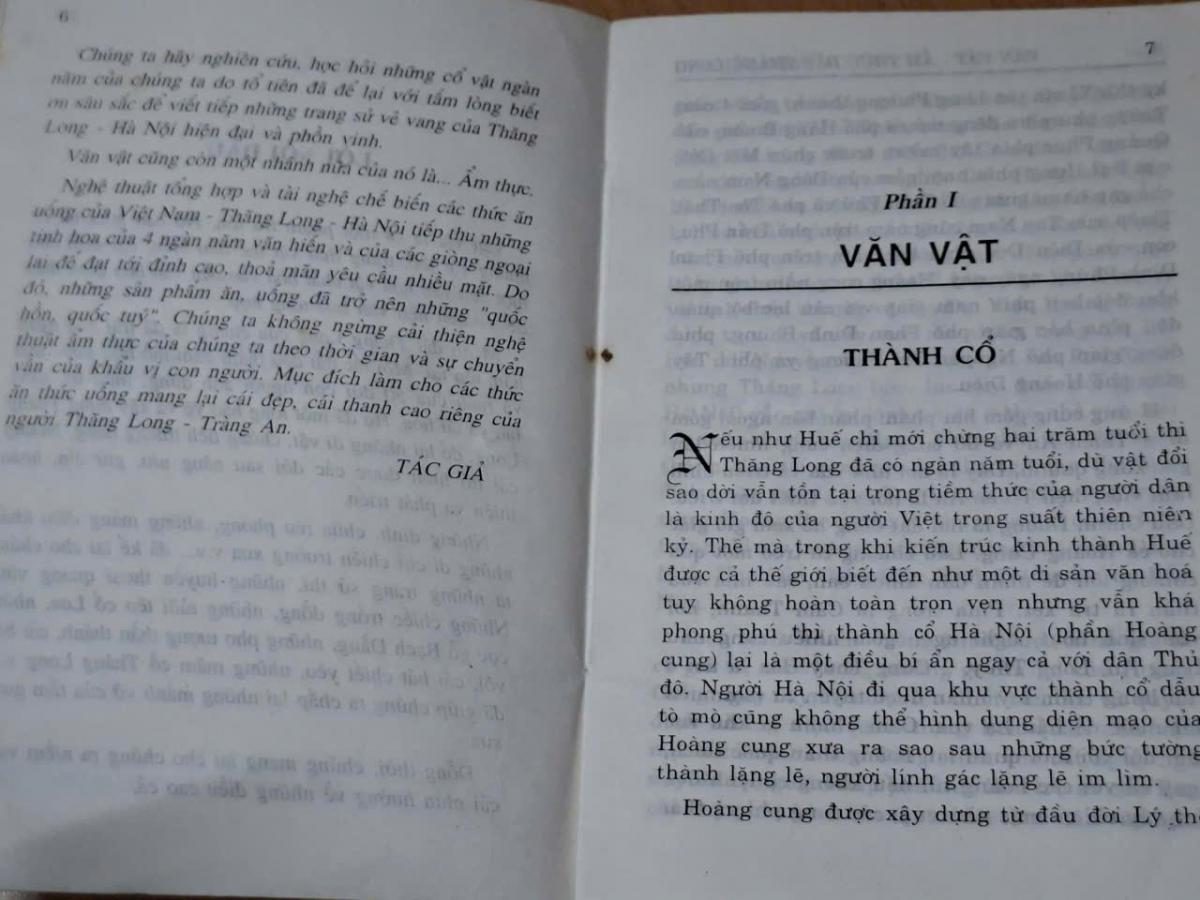 6
Chúng ta hãy nghiên cứu, học hỏi những cổ vật ngàn
năm của chúng ta do tổ tiên đã để lại với tấm lòng biết
ơn sâu sắc để viết tiếp những trang sử vẻ vang của Thăng
Long - Hà Nội hiện đại và phồn vinh.
Văn vật cũng còn một nhánh nữa của nó là... Ẩm thực.
Nghệ thuật tổng hợp và tài nghệ chế biến các thức ăn
uống của Việt Nam - Thăng Long - Hà Nội tiếp thu những
tinh hoa của 4 ngàn năm văn hiến và của các giòng ngoại
lai để đạt tới đỉnh cao, thoả mãn yêu cầu nhiều mặt. Do
đó, những sản phẩm ăn, uống đã trở nên những "quốc
hồn, quốc tuý". Chúng ta không ngừng cải thiện nghệ
thuật ẩm thực của chúng ta theo thời gian và sự chuyển
vần của khẩu vị con người. Mục đích làm cho các thức
ăn thức uống mang lại cái đẹp, cái thanh cao riêng của
người Thăng Long - Tràng An.
TÁC GIẢ
7
Phần I
VĂN VẬT
THÀNH CỔ
Nếu như Huế chỉ mới chừng hai trăm tuổi thì
Thăng Long đã có ngàn năm tuổi, dù vật đổi
sao dời vẫn tồn tại trong tiềm thức của người dân
là kinh đô của người Việt trong suất thiên niên
kỷ. Thế mà trong khi kiến trúc kinh thành Huế
được cả thế giới biết đến như một di sản văn hoá
tuy không hoàn toàn trọn vẹn nhưng vẫn khá
phong phú thì thành cổ Hà Nội (phần Hoàng
cung) lại là một điều bí ẩn ngay cả với dân Thủ
đô. Người Hà Nội đi qua khu vực thành cổ dẫu
tò mò cũng không thể hình dung diện mạo của
Hoàng cung xưa ra sao sau những bức tường
thành lặng lẽ, người lính gác lặng lẽ im lìm.
Hoàng cung được xây dựng từ đầu đời Lý